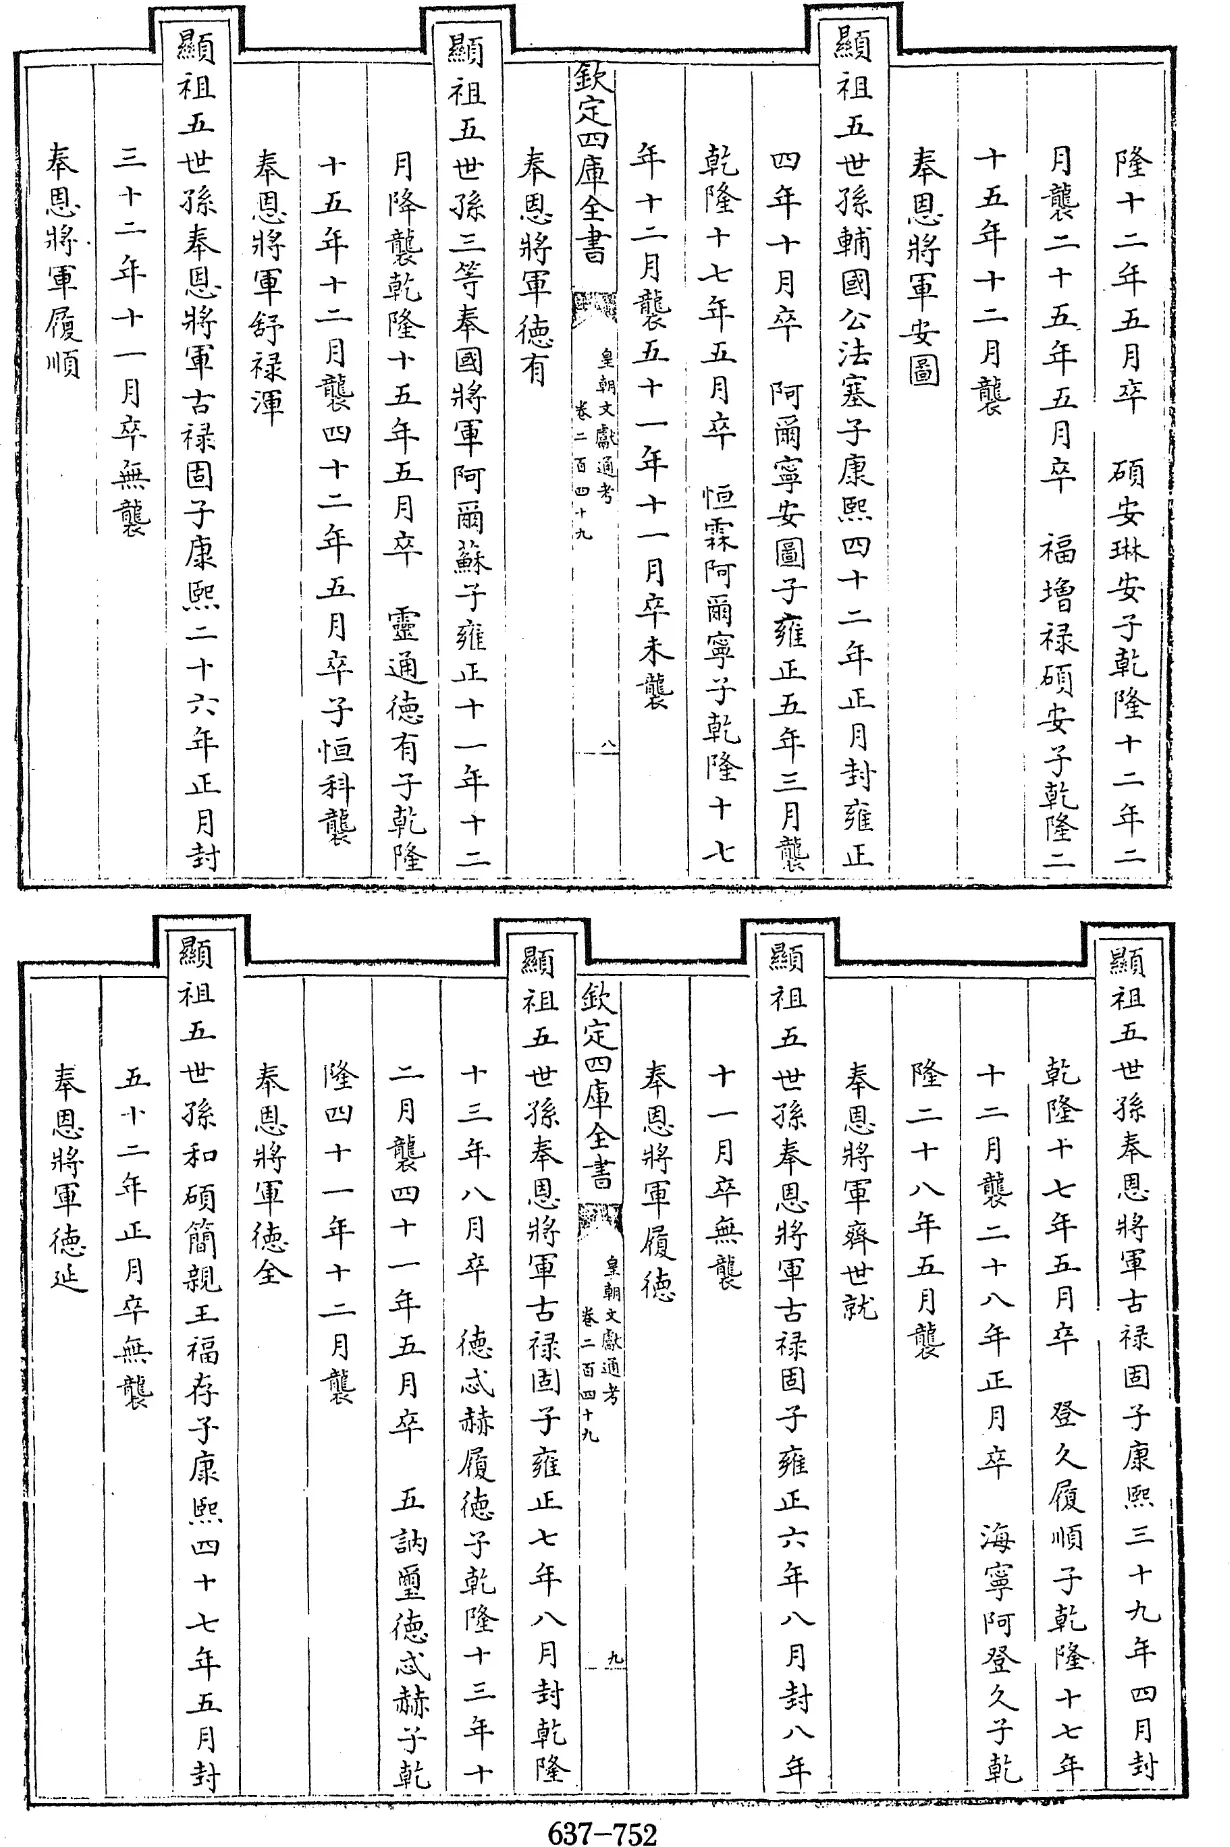 隆十二年五月卒　碩安琳安子乾隆十二年二
月襲二十五年五月卒　福增禄碩安子乾隆二
十五年十二月襲
奉恩將軍安圖
顯祖五世孫輔國公法塞子康熙四十二年正月封雍正
四年十月卒　阿爾寧安圖子雍正五年三月襲
乾隆十七年五月卒　恒霖阿爾寧子乾隆十七
年十二月襲五十一年十一月卒未襲
欽定四庫全書
皇朝文獻通考
卷二百四十九
八
奉恩將軍德有
顯祖五世孫三等奉國將軍阿爾蘇子雍正十一年十二
月降襲乾隆十五年五月卒　靈通德有子乾隆
十五年十二月襲四十二年五月卒子恒科襲
奉恩將軍舒禄渾
顯祖五世孫奉恩將軍古禄固子康熙二十六年正月封
三十二年十一月卒無襲
奉恩將軍履順
顯祖五世孫奉恩將軍古禄固子康熙三十九年四月封
乾隆十七年五月卒　登久履順子乾隆十七年
十二月襲二十八年正月卒　海寧阿登久子乾
隆二十八年五月襲
奉恩將軍齊世就
顯祖五世孫奉恩將軍古禄固子雍正六年八月封八年
十一月卒無襲
奉恩將軍履德
欽定四庫全書
皇朝文獻通考
卷二百四十九
九
顯祖五世孫奉恩將軍古禄固子雍正七年八月封乾隆
十三年八月卒　德忒赫履德子乾隆十三年十
二月襲四十一年五月卒　五訥璽德忒赫子乾
隆四十一年十二月襲
奉恩將軍德全
顯祖五世孫和碩簡親王福存子康熙四十七年五月封
五十二年正月卒無襲
奉恩將軍德延
637-752